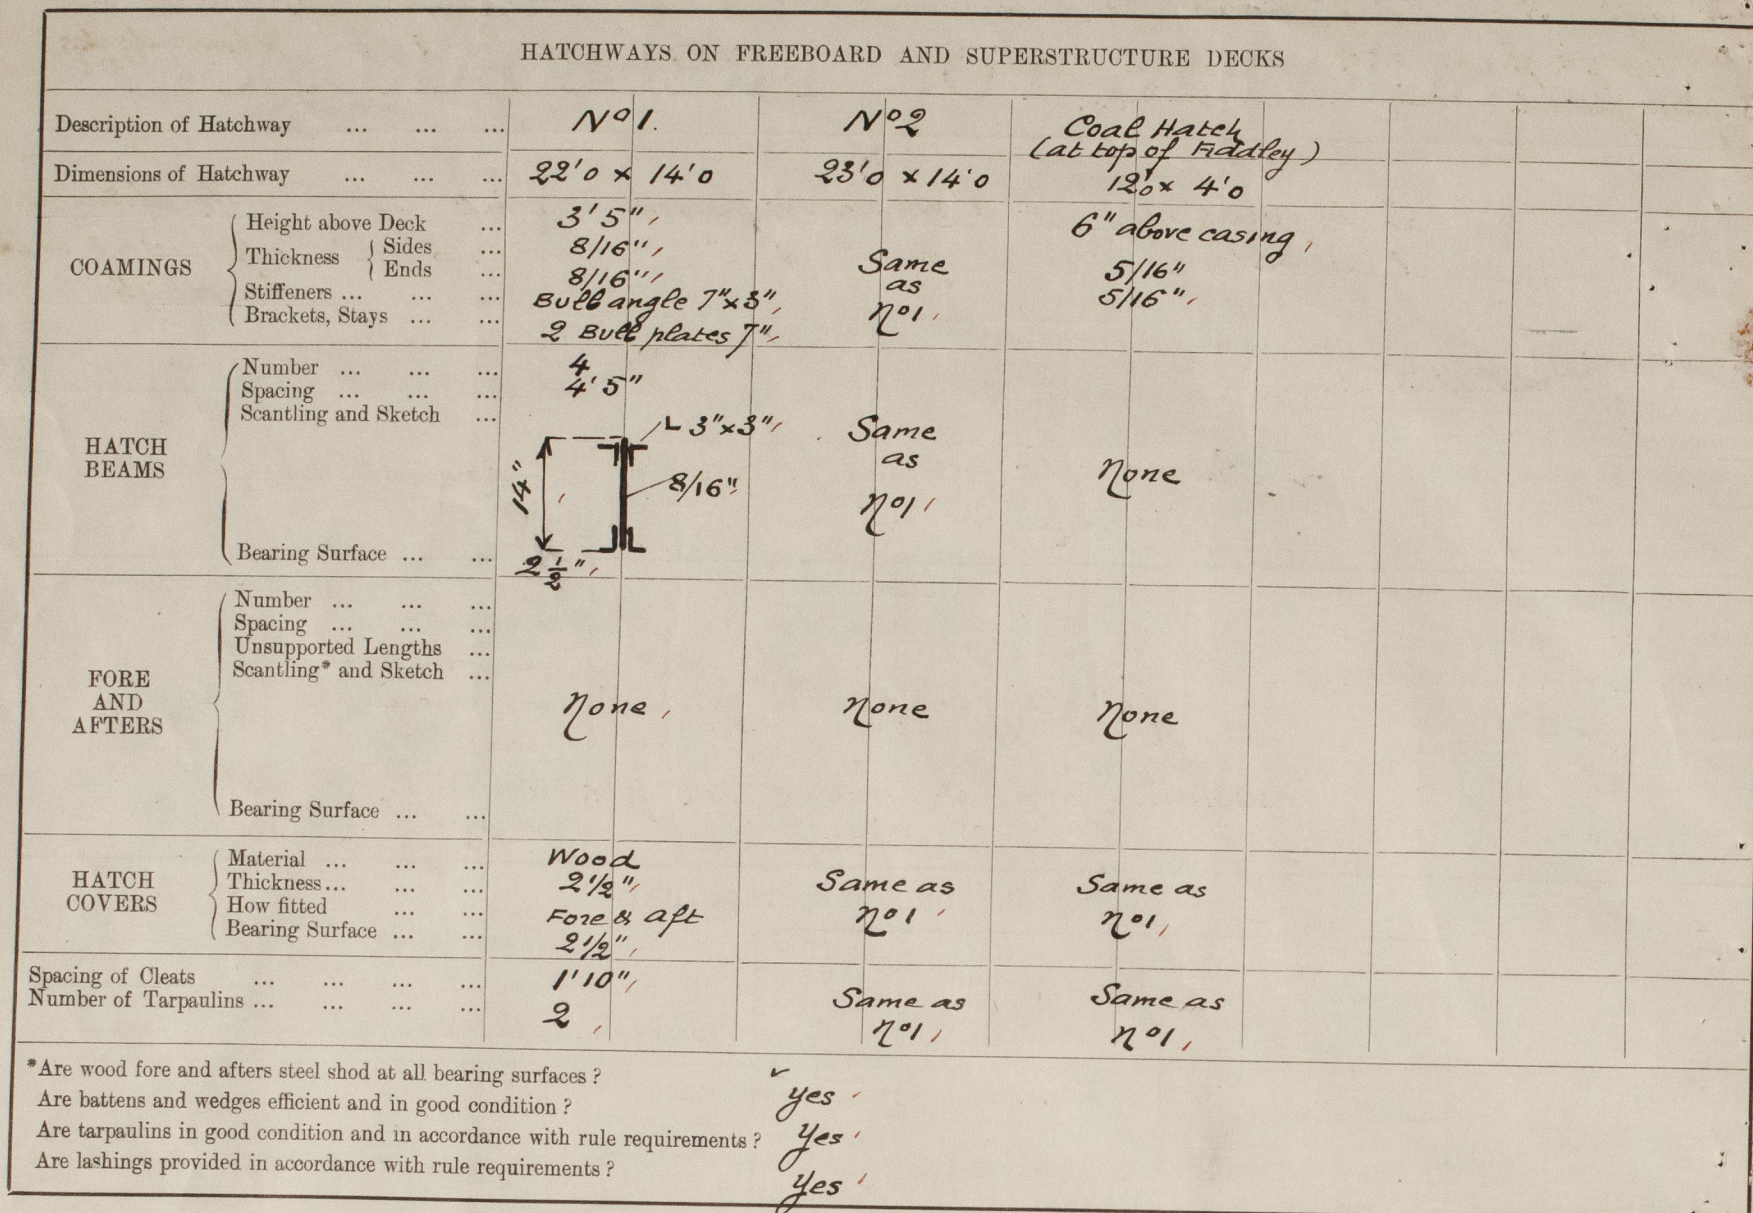 HATCHWAYS ON FREEBOARD AND SUPERSTRUCTURE DECKS
Description of Hatchway ... ... ... No 1. No 2 Coal Hatch
(at top of Fiddley)
Dimensions of Hatchway ... ... ... 22'0 x 14'0 23'0 x 14'0 12'0 x 4'0
COAMINGS
Height above Deck ... 3' 5" 6" above casing
Thickness { Sides ... 8/16" 5/16"
Ends ... 8/16" 5/16"
Stiffeners ... ... ... Bulb angle 7"x3"
Brackets, Stays ... ... 2 Bulb plates 7"
Same
as
No1
HATCH
BEAMS
Number ... ... ... 4
Spacing ... ... ... 4' 5"
Scantling and Sketch ...
L 3"x3"
14"
8/16"
Same
as
No1
None
Bearing Surface ... ... 2 1/2"
FORE
AND
AFTERS
Number ... ... ...
Spacing ... ... ...
Unsupported Lengths ...
Scantling* and Sketch ...
None None None
Bearing Surface ... ...
HATCH
COVERS
Material ... ... ... Wood
Thickness... ... ... 2 1/2"
How fitted ... ... Fore & aft
Bearing Surface ... ... 2 1/2"
Same as
No1
Same as
No1
Spacing of Cleats ... ... ... ... 1'10"
Number of Tarpaulins ... ... ... ... 2
Same as
No1
Same as
No1
*Are wood fore and afters steel shod at all bearing surfaces ? ✓
Are battens and wedges efficient and in good condition ? Yes
Are tarpaulins in good condition and in accordance with rule requirements ? Yes
Are lashings provided in accordance with rule requirements ? Yes